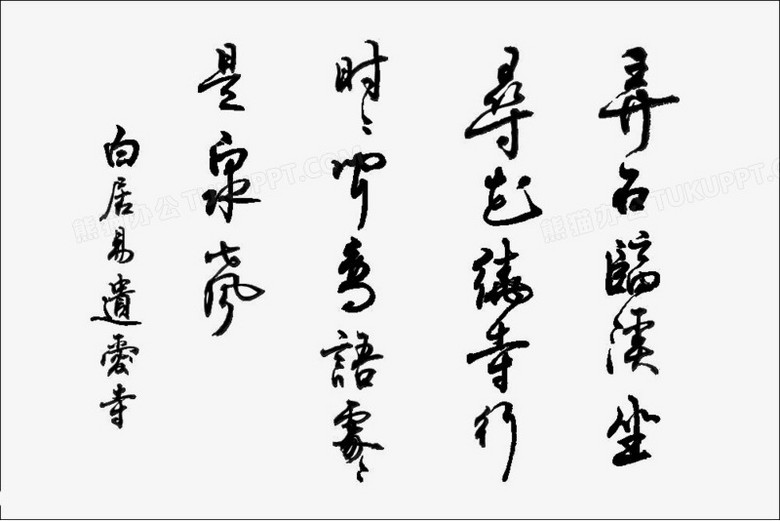 弄石臨溪坐
尋花繞寺行
时〻聞鳥語處〻
是泉聲
白居易遺愛寺
熊猫办公 TUKUPPT.COM
熊猫办公 TUKUPPT.COM